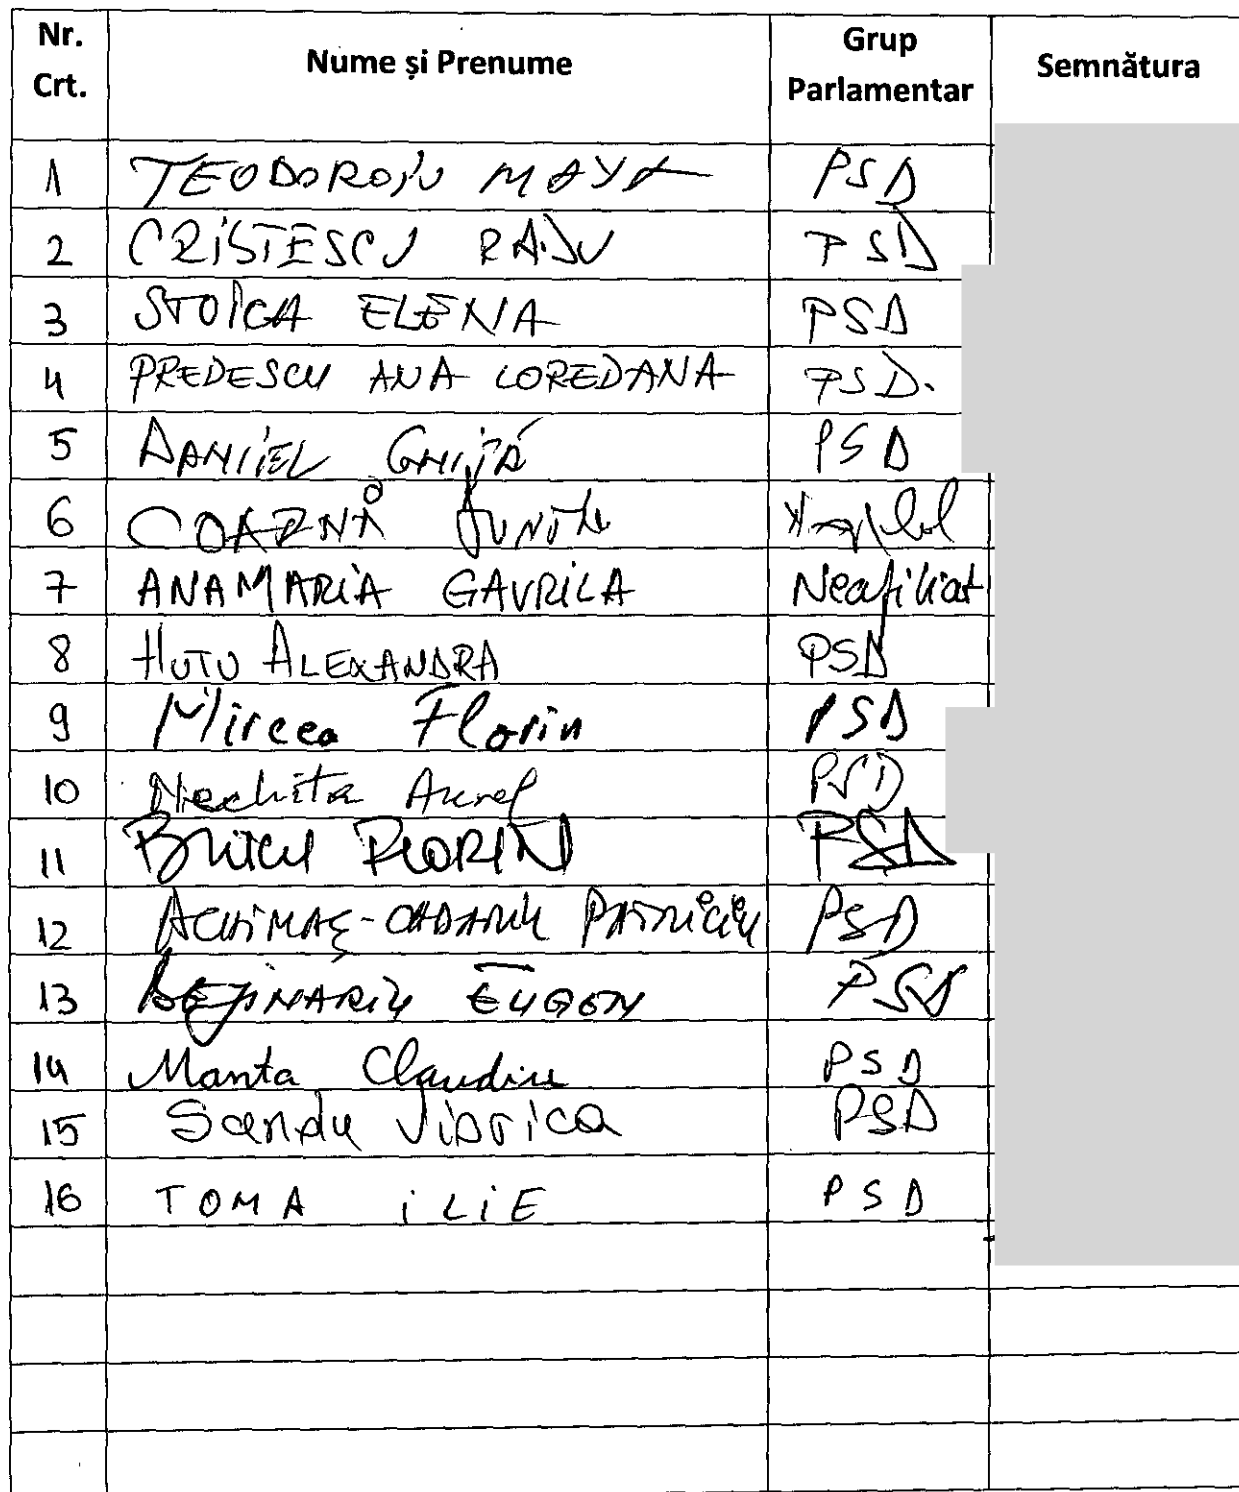 Nr. Crt. Nume și Prenume Grup Parlamentar Semnătura
1 TEODOROIU MAYA PSD
2 CRISTESCU RADU PSD
3 STOICA ELENA PSD
4 PREDESCU ANA LOREDANA PSD.
5 DANIEL GHIȚĂ PSD
6 COARNĂ
7 ANAMARIA GAVRILA Neafiliat
8 HUTU ALEXANDRA PSD
9 Mircea Florin PSD
10 Nechita Aurel PSD
11 FLORIN PSD
12 ACHIMAȘ-CADARIU PATRICIU PSD
13 BEJINARIU EUGEN PSD
14 Manta Claudiu PSD
15 Sandu Viorica PSD
16 TOMA iLiE PSD